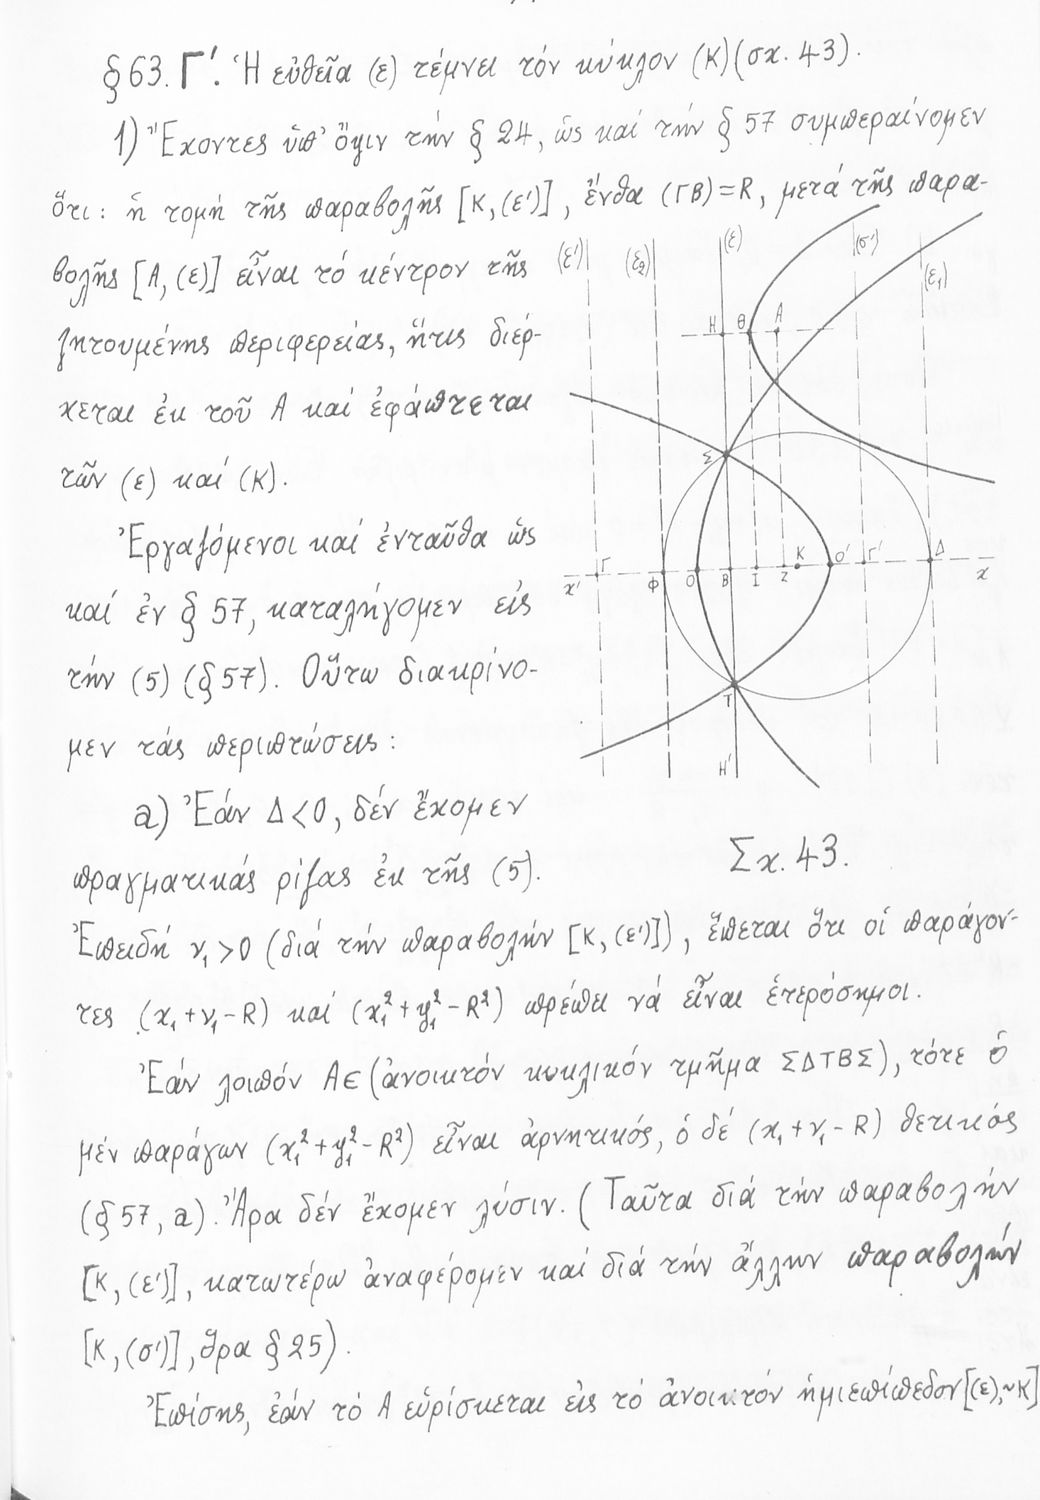 § 63. Γ΄. Ἡ εὐθεῖα (ε) τέμνει τόν κύκλον (Κ) (σχ. 43).
1) Ἔχοντες ὑπ' ὄψιν τήν § 24, ὡς καί τήν § 57 συμπεραίνομεν
ὅτι: ἡ τομή τῆς παραβολῆς [Κ, (ε')], ἔνθα (ΓΒ) = R, μετά τῆς παρα-
βολῆς [Α, (ε)] εἶναι τό κέντρον τῆς
ζητουμένης περιφερείας, ἥτις διέρ-
χεται ἐκ τοῦ Α καί ἐφάπτεται
τῶν (ε) καί (Κ).
Ἐργαζόμενοι καί ἐνταῦθα ὡς
καί ἐν § 57, καταλήγομεν εἰς
τήν (5) (§ 57). Οὕτω διακρίνο-
μεν τάς περιπτώσεις:
(ε') (ε₂) (ε) (σ') (ε₁)
Η Θ Α
Σ
x' Γ Φ Ο Β Ι Ζ Κ Ο' Γ' Δ x
Τ
Η'
Σχ. 43.
a) Ἐάν Δ < 0, δέν ἔχομεν
πραγματικάς ρίζας ἐκ τῆς (5).
Ἐπειδή ν₁ > 0 (διά τήν παραβολήν [Κ, (ε')]), ἕπεται ὅτι οἱ παράγον-
τες (x₁ + ν₁ - R) καί (x₁² + y₁² - R²) πρέπει νά εἶναι ἑτερόσημοι.
Ἐάν λοιπόν Α ∈ (ἀνοικτόν κυκλικόν τμῆμα ΣΔΤΒΣ), τότε ὁ
μέν παράγων (x₁² + y₁² - R²) εἶναι ἀρνητικός, ὁ δέ (x₁ + ν₁ - R) θετικός
(§ 57, a). Ἄρα δέν ἔχομεν λύσιν. (Ταῦτα διά τήν παραβολήν
[Κ, (ε')], κατωτέρω ἀναφέρομεν καί διά τήν ἄλλην παραβολήν
[Κ, (σ')], ὅρα § 25).
Ἐπίσης, ἐάν τό Α εὑρίσκεται εἰς τό ἀνοικτόν ἡμιεπίπεδον [(ε), ~Κ]